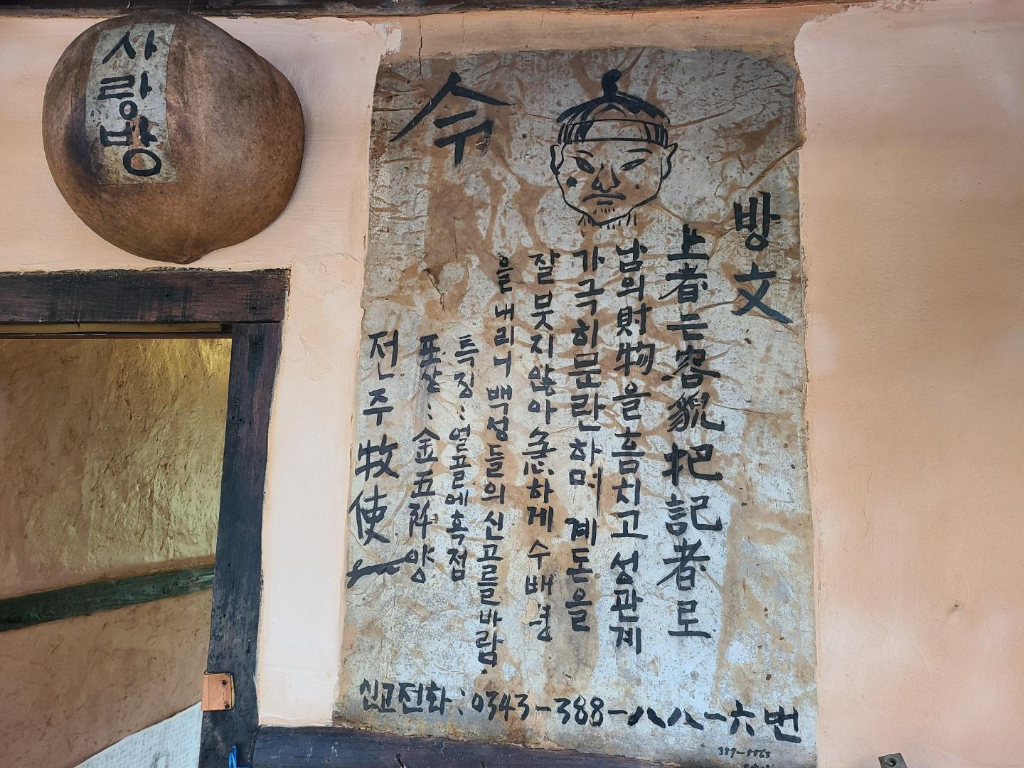 사랑방
令
방文
上者는容貌把記者로
남의財物을흠치고성관계
가극히문란하며 계돈을
잘붓지않아急하게수배령
을 내리니 백성들의신고를바람.
특징:얼굴에혹점
포상:金五阡양
전주牧使
신고전화:0343-388-八八一六번